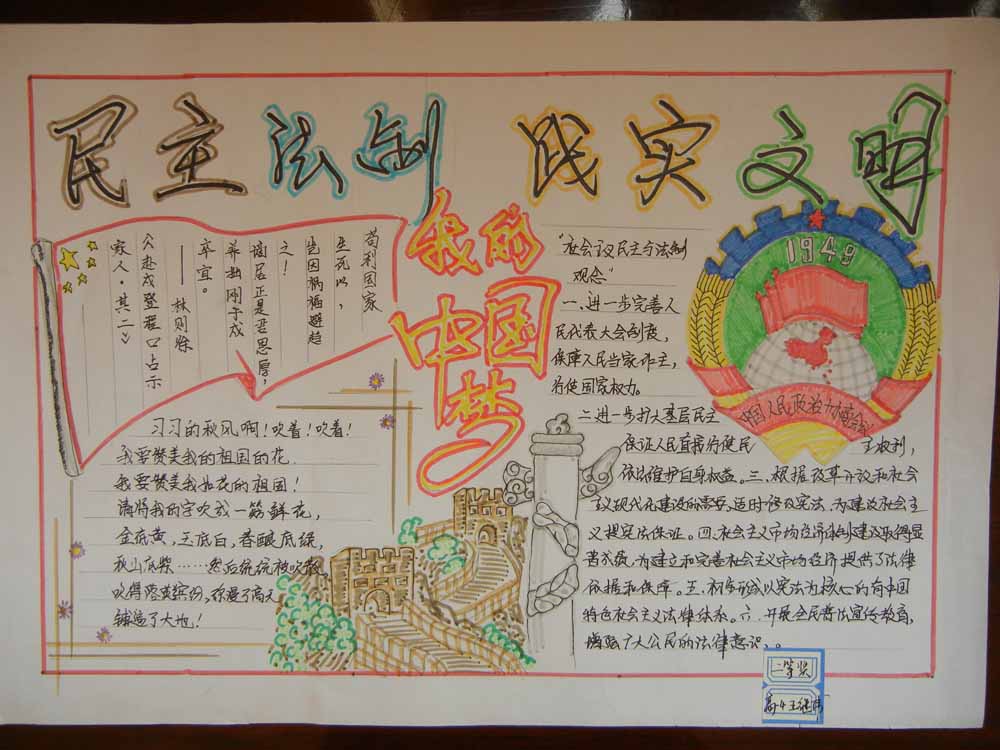 民主法制 实文明
我的
中国
梦
苟利国家
生死以，
岂因祸福避趋
之！
谪居正是君恩厚，
养拙刚于戍
卒宜。
——林则徐
《赴戍登程口占示
家人·其二》
习习的秋风啊！吹着！吹着！
我要赞美我的祖国的花.
我要赞美我如花的祖国！
请将我的字吹成一簇鲜花，
金底黄，玉底白，春酿底绿，
秋山底紫……然后统统吹散，
吹得落英缤纷，弥漫了高天
铺遍了大地！
"社会议民主与法制
观念"
一.进一步完善人
民代表大会制度，
保障人民当家作主，
行使国家权力。
二.进一步扩大基层民主
保证人民直接行使民主权利，
依法维护自身权益。三.根据改革开放和社会
主义现代化建设的需要，适时修改宪法，为建设社会主
义提宪法保证。四.社会主义市场经济法制建设取得显
著成效，为建立和完善社会主义市场经济提供了法律
依据和保障。五.初步形成以宪法为核心的有中国
特色社会主义法律体系。六.开展全民普法宣传教育，
增强广大公民的法律意识。
1949
中国人民政治协商会议
二等奖
高